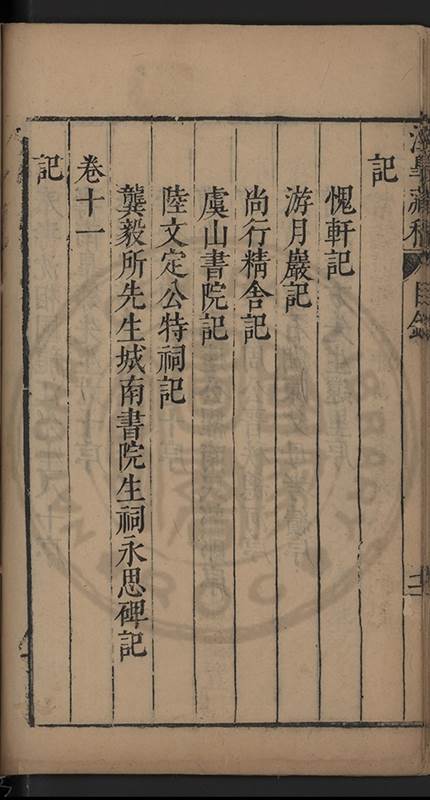 藏稿 目錄
記
愧軒記
游月巖記
尚行精舍記
虞山書院記
陸文定公特祠記
龔毅所先生城南書院生祠永思碑記
卷十一
記